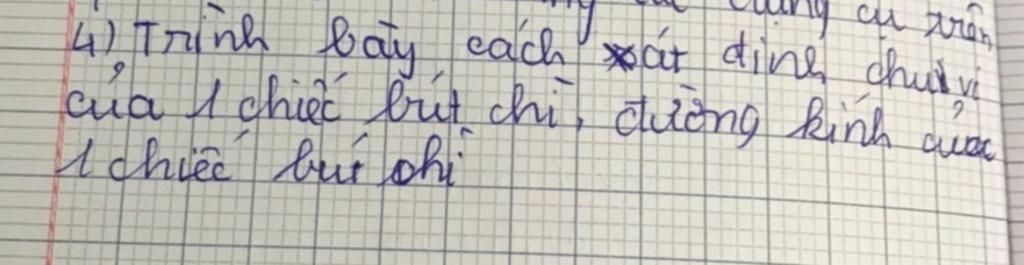 4) Trình bày cách xát định chu vi
của 1 chiếc bút chì, đường kính của
1 chiếc bút chì